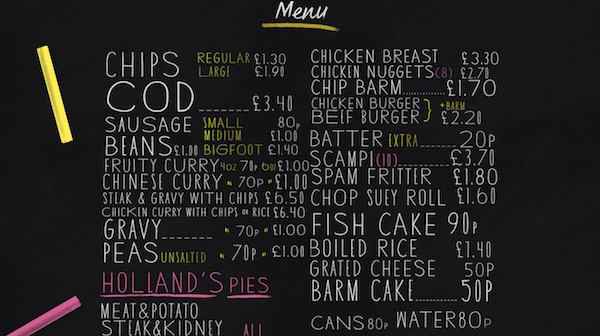 Menu
CHIPS REGULAR £1.30
LARGE £1.90
COD £3.40
SAUSAGE SMALL 80p
MEDIUM £1.00
BEANS £1.00 BIGFOOT £1.40
FRUITY CURRY 4oz 70p 6oz £1.00
CHINESE CURRY " 70p " £1.00
STEAK & GRAVY WITH CHIPS £6.50
CHICKEN CURRY WITH CHIPS OR RICE £6.40
GRAVY " 70p " £1.00
PEAS UNSALTED " 70p " £1.00
HOLLAND'S PIES
MEAT&POTATO
STEAK&KIDNEY ALL
CHICKEN BREAST £3.30
CHICKEN NUGGETS (8) £2.70
CHIP BARM £1.70
CHICKEN BURGER + BARM
BEEF BURGER £2.20
BATTER EXTRA 20p
SCAMPI (10) £3.70
SPAM FRITTER £1.80
CHOP SUEY ROLL £1.60
FISH CAKE 90p
BOILED RICE £1.40
GRATED CHEESE 50P
BARM CAKE 50P
CANS 80p WATER 80p